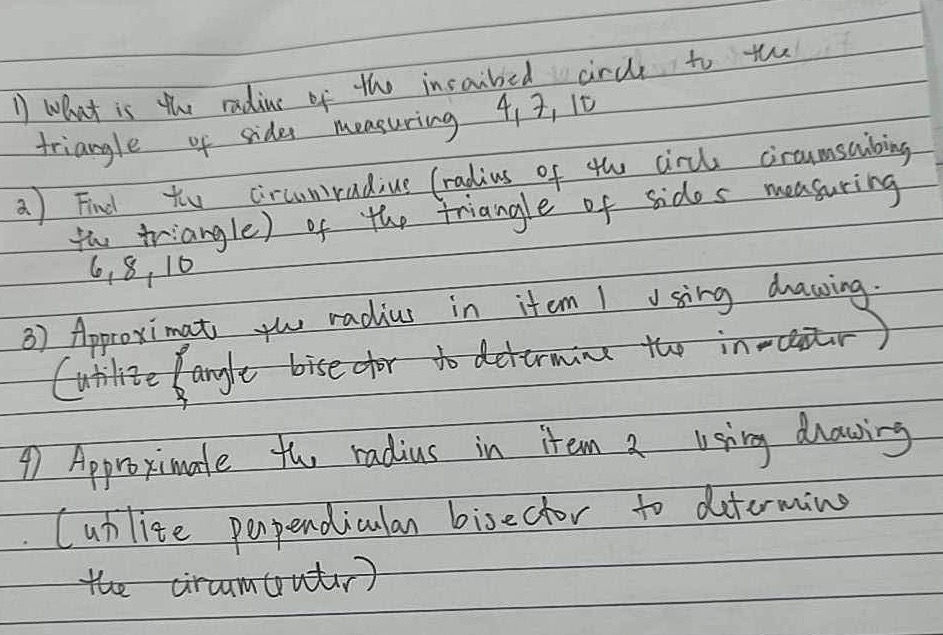 1) What is the radius of the inscribed circle to the
triangle of sides measuring 4, 7, 10
2) Find the circumradius (radius of the circle circumscribing
the triangle) of the triangle of sides measuring
6, 8, 10
3) Approximate the radius in item 1 using drawing.
(utilize angle bisector to determine the in-center)
4) Approximate the radius in item 2 using drawing
(utilize perpendicular bisector to determine
the circumcenter)